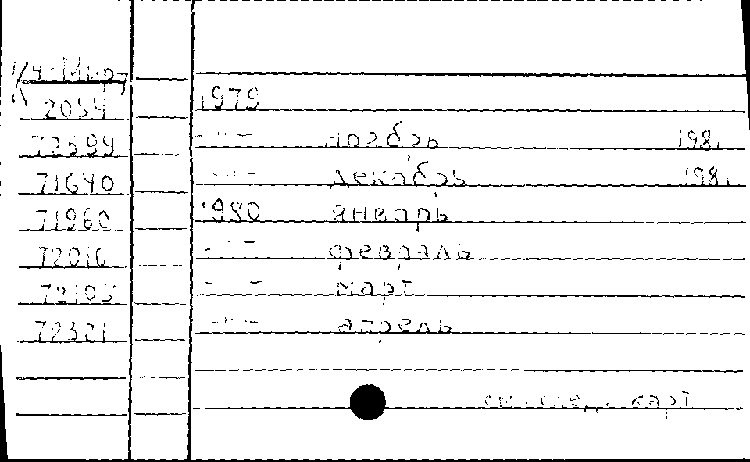 1979
2054
72599 -"- ноябрь 198.
71640 -"- декабрь 198.
71960 1980 январь
72016 -"- февраль
72103 -"- март
72321 -"- апрель
см. след. карт